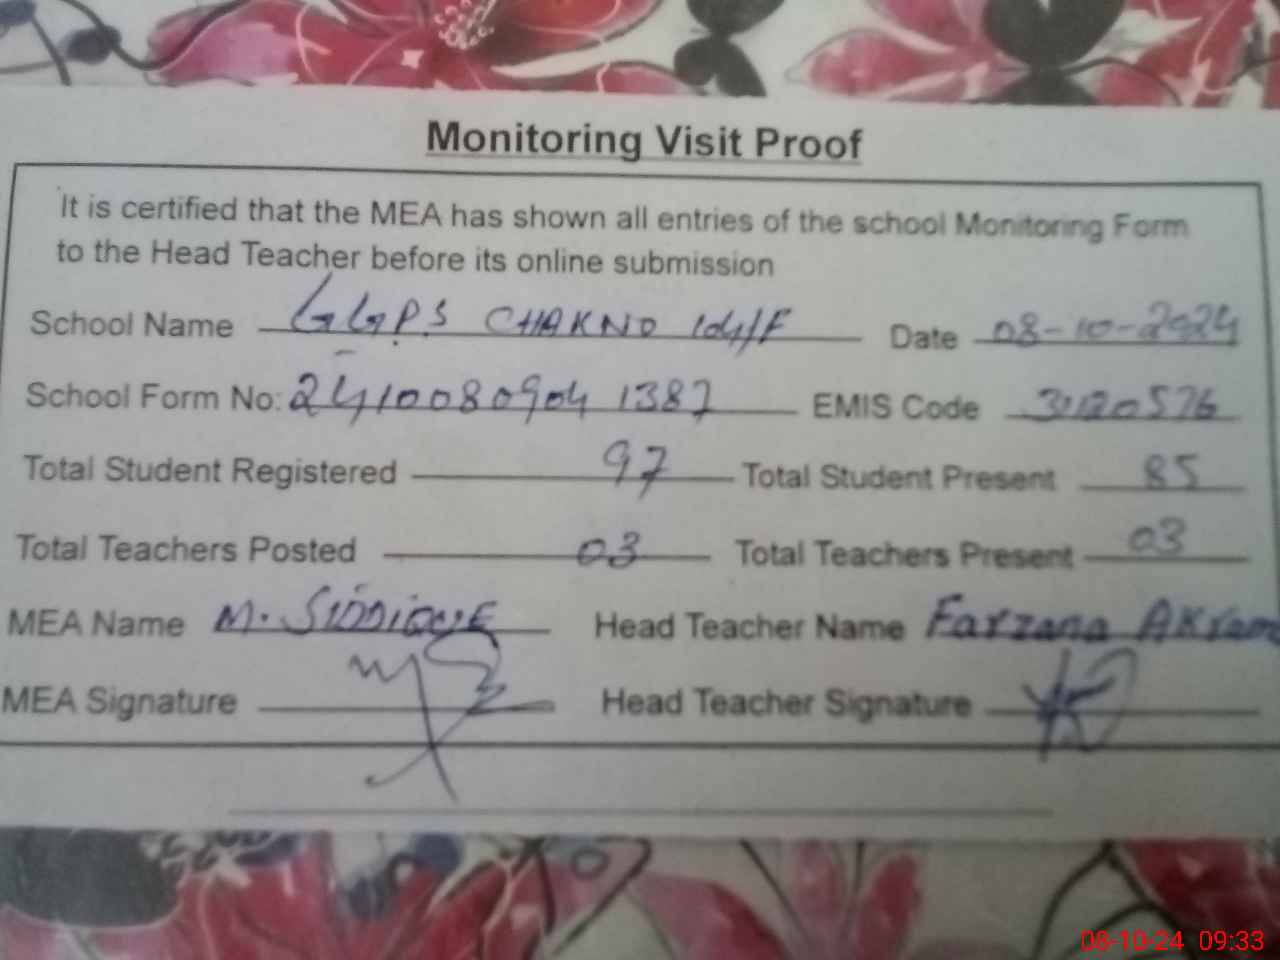 Monitoring Visit Proof
It is certified that the MEA has shown all entries of the school Monitoring Form
to the Head Teacher before its online submission
School Name GGPS CHAKNO 104/F Date 08-10-2024
School Form No: 24100809041387 EMIS Code 31120576
Total Student Registered 97 Total Student Present 85
Total Teachers Posted 03 Total Teachers Present 03
MEA Name M. SIDDIQUE Head Teacher Name Farzana Akram
MEA Signature Head Teacher Signature
08-10-24 09:33